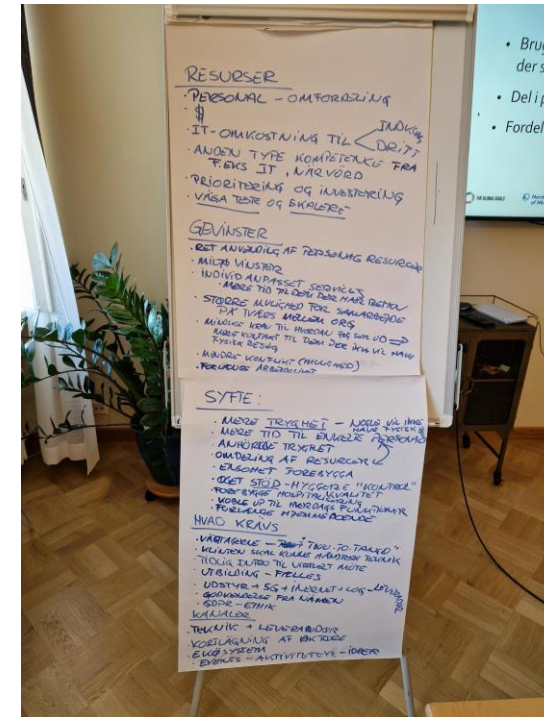 RESURSER
· PERSONAL - OMFORDELING
· $
· IT-OMKOSTNING TIL
DRIFT
· ANDEN TYPE KOMPETENCE FRA
F.EKS IT, NÄRVÅRD
· PRIORITERING OG INVESTERING
· VÅGA TESTE OG SKALERE
GEVINSTER
· RET ANVENDING AF PERSONAL RESURCER
· MILJØ VINSTER
· INDIVID ANPASSET SERVICE
- MERE TID TIL DEM DER HAR BEHOV
· STØRRE MULIGHED FOR SAMARBEJDE
PÅ TVÆRS MELLEM ORG
· MINDRE KRAV TIL HVORDAN
MERE KONTAKT TIL DEM DER IKKE VIL HAVE
FYSISK BESØG
· MINDRE KONFLIKT
· FORLÆNGE ARBEJDSLIVET
SYFTE:
· MERE TRYGHET - NOGLE VIL IKKE
HAVE FYSISK
· MERE TID TIL ENKELTE PERSONAL
· ANHÖRIGE TRYGHET
· OMDELING AF RESURCER
· ENSOMHET FOREBYGGA
· ØGET STÖD - HYGGELIG "KONTROL"
· FOREBYGGE HOSPITALISERING
KVALITET
· KOBLE UP TIL HVERDAGS FUNKTIONER
· FORLÄNGE HJEMMEBOENDE
HVAD KRÄVS
- "TWO TO TANGO"
· KLIENTEN SKAL KUNNE HÅNDTERE TEKNIK
· TIDLIG INTRO TIL VIRTUELT MÖTE
· UTBILDING - FÆLLES
· UDSTYR + 5G + INTERNET + LOG
· GODKENDELSE FRA NÄMDEN
· GDPR - ETHIK
KANALER
· TEKNIK + LEVERANDØR
· KARTLÄGNING AF AKTØRE
· EKOSYSTEM
· EVENTS - AKTIVITETER - IDEER
· Brug
der s
· Del i p
· Fordel